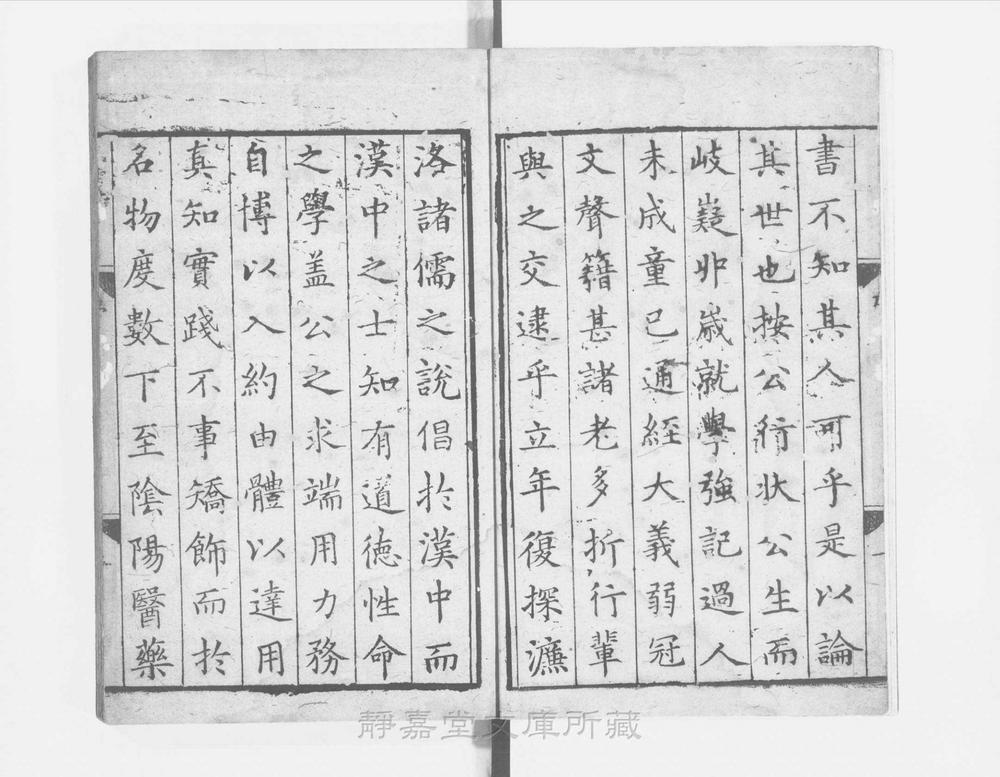 書不知其人可乎是以論
其世也按公行狀公生而
岐嶷丱歳就學強記過人
未成童已通經大義弱冠
文聲籍甚諸老多折行輩
與之交逮乎立年復探濂
洛諸儒之說倡於漢中而
漢中之士知有道德性命
之學盖公之求端用力務
自博以入約由體以達用
真知實踐不事矯飾而於
名物度數下至陰陽醫藥
靜嘉堂文庫所藏